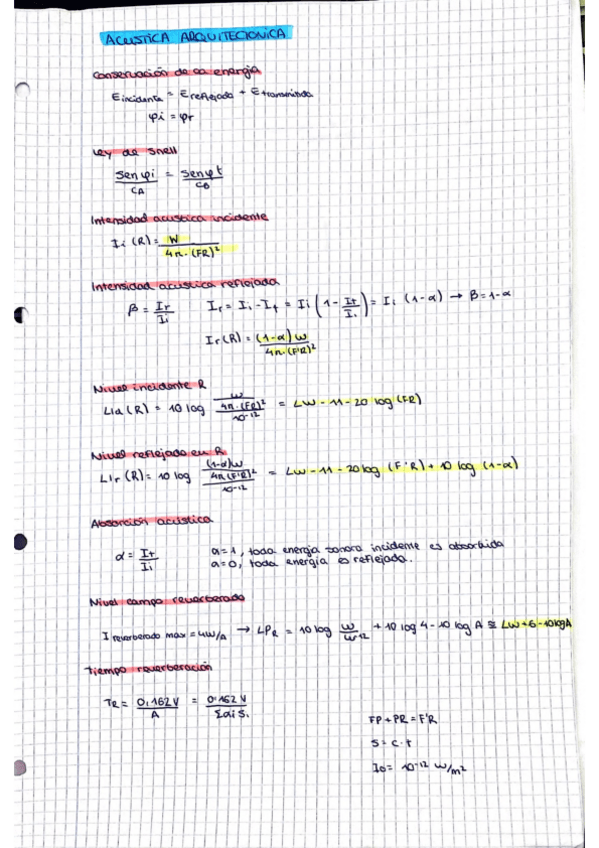 ACUSTICA ARQUITECTONICA
Conservación de la energía
Eincidente = Ereflejada + Etransmitida
φi = φr
Ley de Snell
Sen φi / CA = Sen φt / CB
Intensidad acustica incidente
Ii (R) = W / 4π·(FR)²
Intensidad acustica reflejada
β = Ir / Ii   Ir = Ii - It = Ii (1 - It / Ii) = Ii (1-α) → β = 1-α
Ir(R) = (1-α) W / 4π·(F'R)²
Nivel incidente R
LIa (R) = 10 log W / 4π·(FR)² / 10⁻¹² = LW - 11 - 20 log (FR)
Nivel reflejado en R
LIr (R) = 10 log (1-α)W / 4π(F'R)² / 10⁻¹² = LW - 11 - 20 log (F'R) + 10 log (1-α)
Absorción acústica
α = It / Ii   α=1, toda energía sonora incidente es absorbida
α=0, toda energía es reflejada.
Nivel campo reverberado
I reverberado max = 4W/A → LPR = 10 log W / W⁻¹² + 10 log 4 - 10 log A ≅ LW + 6 - 10 log A
Tiempo reverberación
TR = 0,162 V / A = 0,162 V / Σαi Si
FP + PR = F'R
S = C·t
I0 = 10⁻¹² W/m²